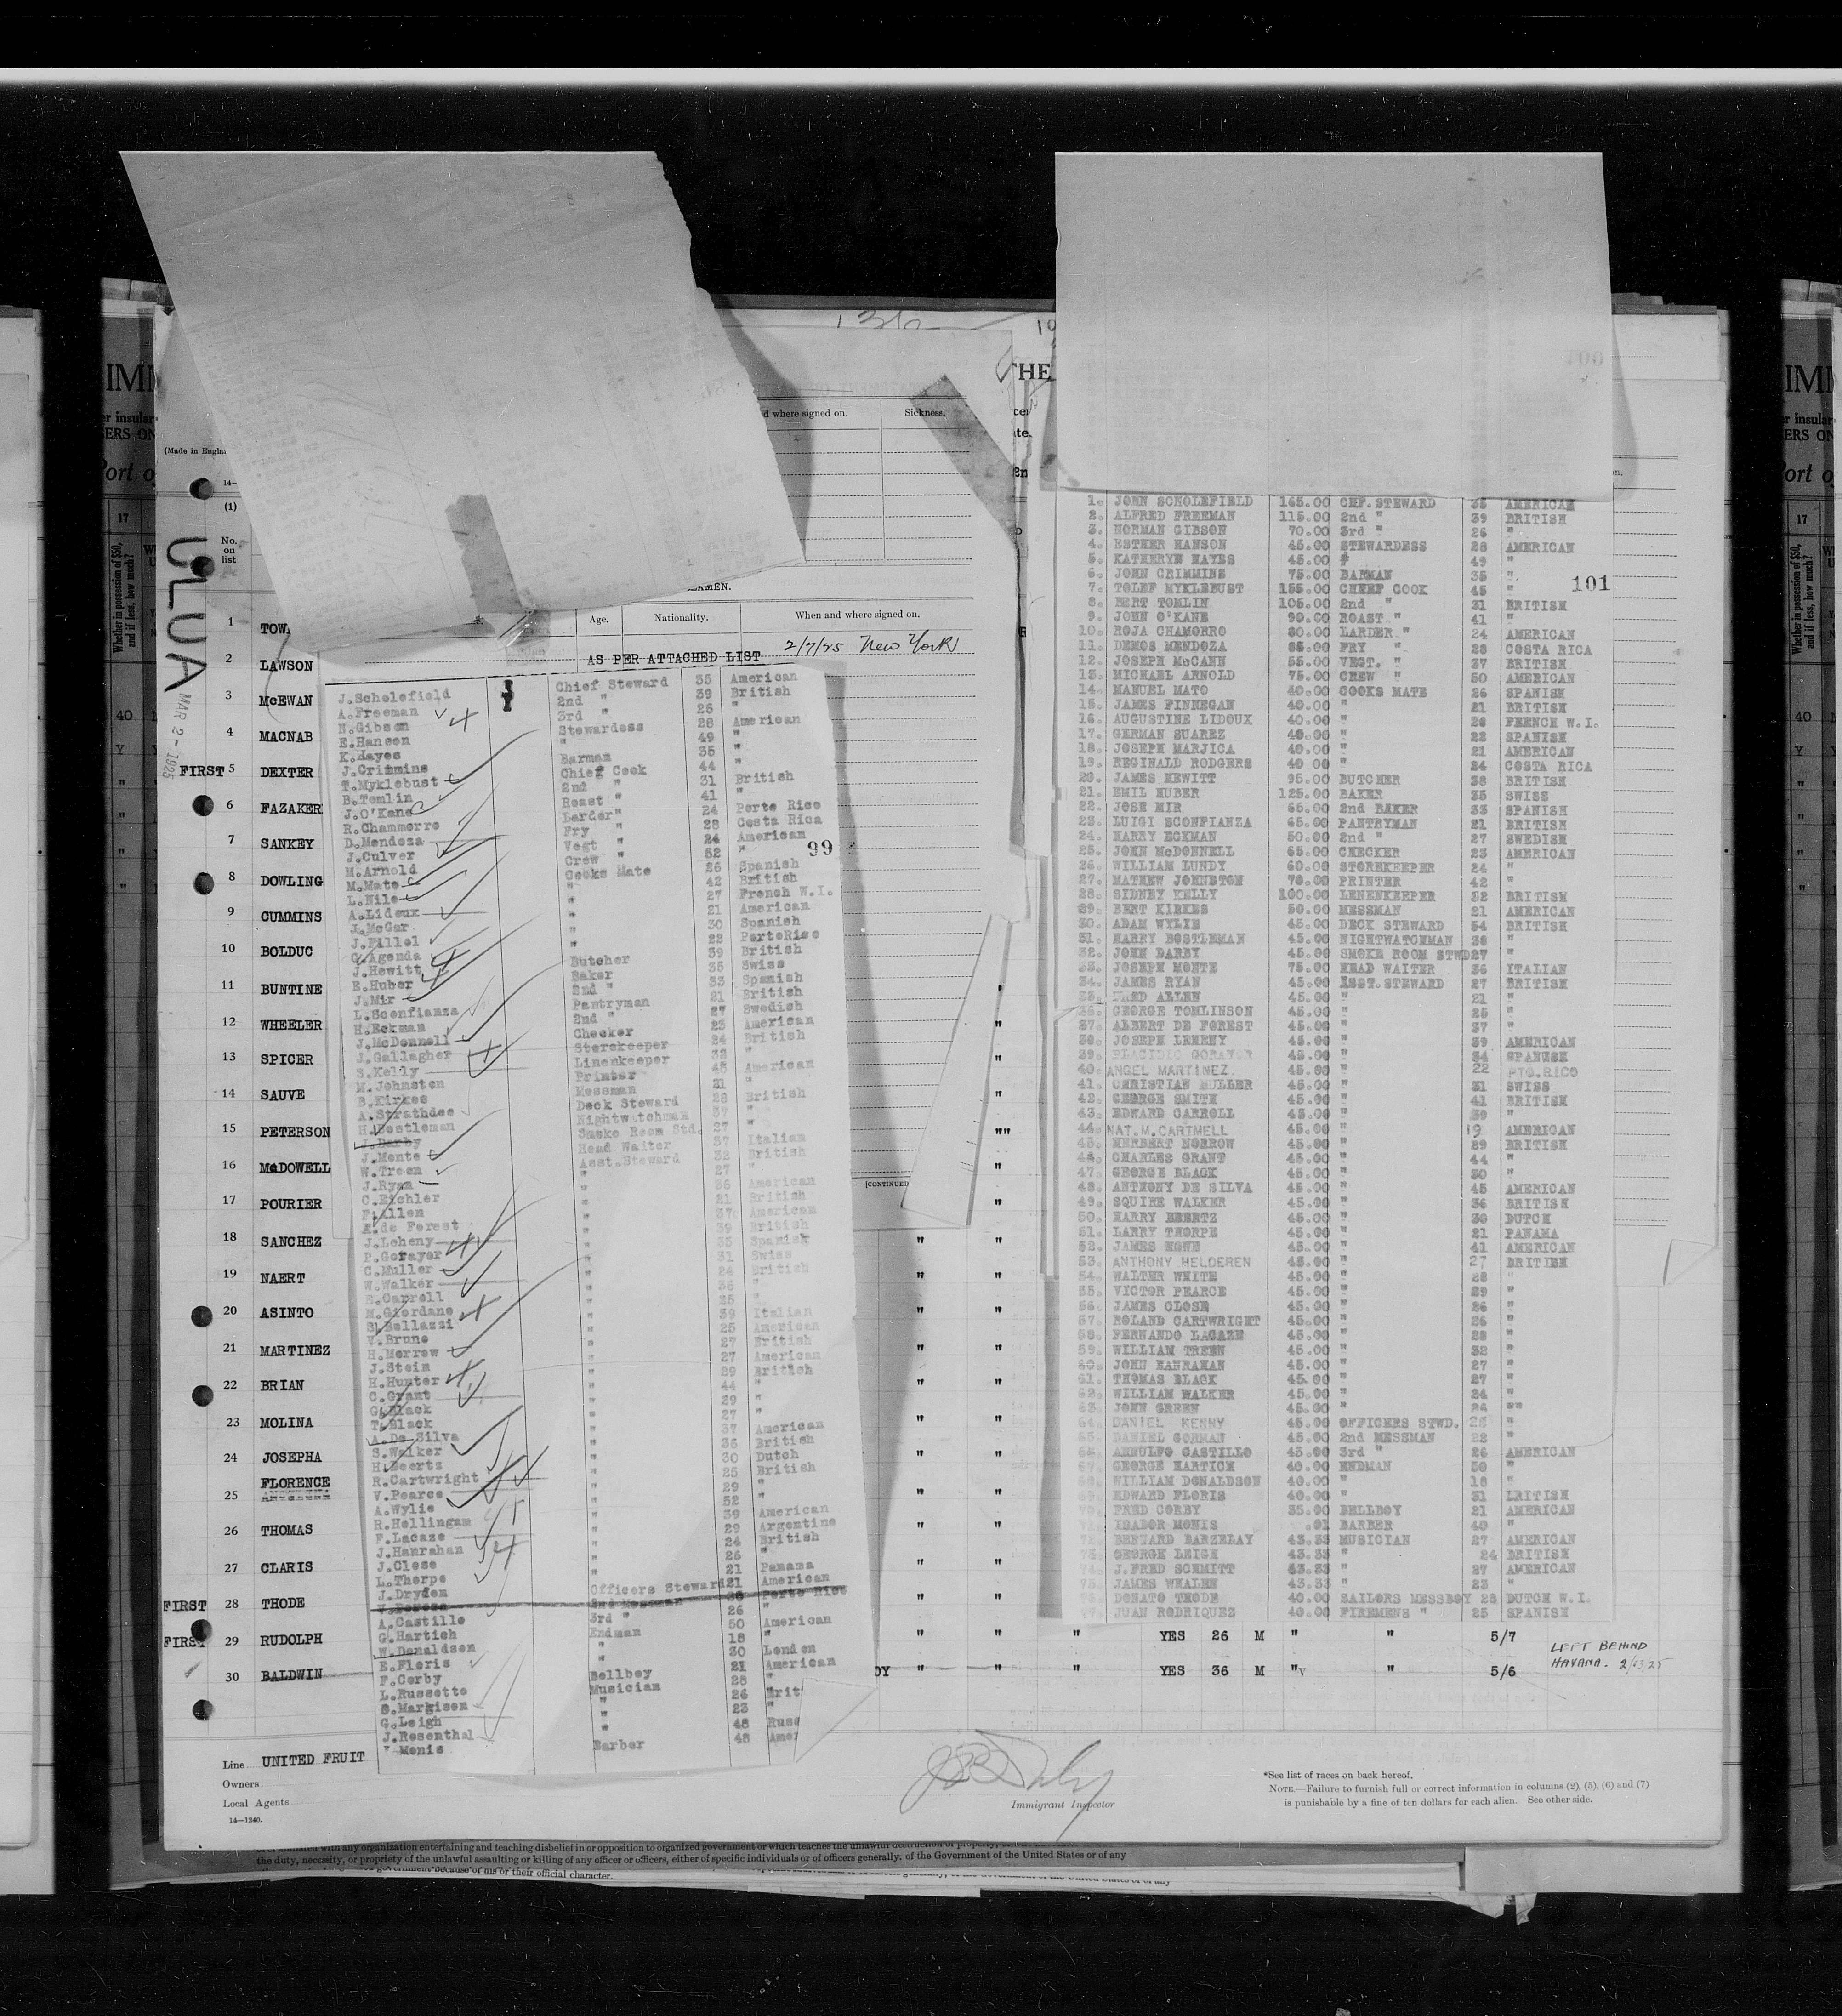 THE
IMM
er insular
ERS ON
Port o
17
Whether in possession of $50,
and if less, how much?
40
Y
(Made in Engla
(1)
No.
on
list
ULUA
MAR 2 - 1925
d where signed on.
Sickness.
Age.
Nationality.
When and where signed on.
AS PER ATTACHED LIST 2/7/25 New York
1
2 LAWSON
3 McEWAN
4 MACNAB
FIRST 5 DEXTER
6 FAZAKER
7 SANKEY
8 DOWLING
9 CUMMINS
10 BOLDUC
11 BUNTINE
12 WHEELER
13 SPICER
14 SAUVE
15 PETERSON
16 McDOWELL
17 POURIER
18 SANCHEZ
19 NAERT
20 ASINTO
21 MARTINEZ
22 BRIAN
23 MOLINA
24 JOSEPHA
25 FLORENCE
26 THOMAS
27 CLARIS
FIRST 28 THODE
FIRST 29 RUDOLPH
30 BALDWIN
J.Scholefield Chief Steward 35 American
A.Freeman 2nd " 39 British
N.Gibson 3rd " 26 "
E.Hansen Stewardess 28 American
K.Hayes " 49 "
J.Crimmins Barman 35 "
T.Myklebust Chief Cook 44 "
B.Tomlin 2nd " 31 British
J.O'Kane Roast " 41 "
R.Chammorro Larder" 24 Porto Rico
D.Mendoza Fry " 28 Costa Rica
J.Culver Vegt " 24 American
M.Arnold Crew " 52 "
M.Mato Cooks Mate 26 Spanish
L.Nile " 42 British
A.Lidoux " 27 French W.I.
J.McGar " 21 American
J.Pillel " 30 Spanish
G.Agenda " 22 PortoRico
J.Hewitt Butcher 39 British
E.Huber Baker 35 Swiss
J.Mir 2nd " 33 Spanish
L.Sconfianza Pantryman 21 British
H.Eckman 2nd " 27 Swedish
J.McDonnell Checker 23 American
J.Gallagher Storekeeper 24 British
S.Kelly Linenkeeper 32
M.Johnston Printer 48 American
B.Kirkes Messman 21 "
A.Strathdee Deck Steward 28 British
H.Bostleman Nightwatchman 37 "
J.Darby Smoke Room Std. 27 "
J.Monte Head Waiter 37 Italian
W.Treen Asst.Steward 32 British
J.Ryan " 27 "
C.Eichler " 36 American
F.Allen " 21 British
A.de Forest " 37 American
J.Leheny " 39 British
P.Gorayor " 35 Spanish
C.Muller " 31 Swiss
W.Walker " 24 British
E.Carroll " 36 "
M.Giordano " 25 "
S.Bellazzi " 39 Italian
V.Bruno " 25 American
H.Morrow " 27 British
J.Stein " 27 American
H.Hunter " 29 British
C.Grant " 44 "
G.Black " 29 "
T.Black " 27 "
A.De Silva " 37 American
S.Walker " 36 British
H.Beertz " 30 Dutch
R.Cartwright " 25 British
V.Pearce " 29 "
A.Wylie " 52 "
R.Hellingam " 39 American
F.Lacaze " 29 Argentine
J.Hanrahan " 24 British
J.Close " 26 "
L.Thorpe " 21 Panama
J.Dryden Officers Steward 21 American
2nd Messman Porto Rico
A.Castillo 3rd " 26 "
G.Hartich Endman 50 American
W.Donaldson " 18 "
E.Floris " 30 London
F.Corby Bellboy 21 American
L.Russotto Musician 28 "
S.Margison " 26 Brit
G.Leigh " 23 "
J.Rosenthal " 48 Russ
Monis Barber 48 Amer
99
[CONTINUED
1. JOHN SCHOLEFIELD 165.00 CHF.STEWARD 35 AMERICAN
2. ALFRED FREEMAN 115.00 2nd " 39 BRITISH
3. NORMAN GIBSON 70.00 3rd " 26 "
4. ESTHER HANSON 45.00 STEWARDESS 28 AMERICAN
5. KATHERYN HAYES 45.00 " 49 "
6. JOHN CRIMMINS 75.00 BARMAN 35 "
7. TOLEF MYKLEBUST 155.00 CHEEF COOK 45 "
8. BERT TOMLIN 105.00 2nd " 31 BRITISH
9. JOHN O'KANE 90.00 ROAST " 41 "
10. ROJA CHAMORRO 80.00 LARDER " 24 AMERICAN
11. DEMOS MENDOZA 65.00 FRY " 28 COSTA RICA
12. JOSEPH McCANN 55.00 VEGT. " 37 BRITISH
13. MICHAEL ARNOLD 75.00 CREW " 50 AMERICAN
14. MANUEL MATO 40.00 COOKS MATE 26 SPANISH
15. JAMES FINNEGAN 40.00 " 21 BRITISH
16. AUGUSTINE LIDOUX 40.00 " 28 FRENCH W.I.
17. GERMAN SUAREZ 40.00 " 22 SPANISH
18. JOSEPH MARJICA 40.00 " 21 AMERICAN
19. REGINALD RODGERS 40 00 " 24 COSTA RICA
20. JAMES HEWITT 95.00 BUTCHER 38 BRITISH
21. EMIL HUBER 125.00 BAKER 35 SWISS
22. JOSE MIR 65.00 2nd BAKER 33 SPANISH
23. LUIGI SCONFIANZA 65.00 PANTRYMAN 21 BRITISH
24. HARRY ECKMAN 50.00 2nd " 27 SWEDISH
25. JOHN McDONNELL 65.00 CHECKER 23 AMERICAN
26. WILLIAM LUNDY 60.00 STOREKEEPER 24 "
27. MATHEW JOHNSTON 70.00 PRINTER 42 "
28. SIDNEY KELLY 100.00 LENENKEEPER 32 BRITISH
29. BERT KIRKES 50.00 MESSMAN 21 AMERICAN
30. ADAM WYLIE 45.00 DECK STEWARD 54 BRITISH
31. HARRY BOSTLEMAN 45.00 NIGHTWATCHMAN 38 "
32. JOHN DARBY 45.00 SMOKE ROOM STWD27 "
33. JOSEPH MONTE 75.00 HEAD WAITER 36 ITALIAN
34. JAMES RYAN 45.00 ASST.STEWARD 27 BRITISH
35. FRED ALLEN 45.00 " 21 "
36. GEORGE TOMLINSON 45.00 " 25 "
37. ALBERT DE FOREST 45.00 " 37 "
38. JOSEPH LEHENY 45.00 " 39 AMERICAN
39. PLACIDIO GORAYOR 45.00 " 34 SPANISH
40. ANGEL MARTINEZ. 45.00 " 22 PTO.RICO
41. CHRISTIAN MULLER 45.00 " 31 SWISS
42. GEORGE SMITH 45.00 " 41 BRITISH
43. EDWARD CARROLL 45.00 " 39 "
44. NAT.M.CARTMELL 45.00 " 19 AMERICAN
45. HERBERT MORROW 45.00 " 29 BRITISH
46. CHARLES GRANT 45.00 " 44 "
47. GEORGE BLACK 45.00 " 30 "
48. ANTHONY DE SILVA 45.00 " 45 AMERICAN
49. SQUIRE WALKER 45.00 " 36 BRITISH
50. HARRY BEERTZ 45.00 " 30 DUTCH
51. LARRY THORPE 45.00 " 21 PANAMA
52. JAMES HOWE 45.00 " 41 AMERICAN
53. ANTHONY HELDEREN 45.00 " 27 BRITISH
54. WALTER WHITE 45.00 " 28 "
55. VICTOR PEARCE 45.00 " 29 "
56. JAMES CLOSE 45.00 " 26 "
57. ROLAND CARTWRIGHT 45.00 " 26 "
58. FERNANDO LACAZE 45.00 " 28 "
59. WILLIAM TREEN 45.00 " 32 "
60. JOHN HANRAHAN 45.00 " 27 "
61. THOMAS BLACK 45.00 " 27 "
62. WILLIAM WALKER 45.00 " 24 "
63. JOHN GREEN 45.00 " 24 "
64. DANIEL KENNY 45.00 OFFICERS STWD. 28 "
65. DANIEL GORMAN 45.00 2nd MESSMAN 22 "
66. ARNULFO CASTILLO 45.00 3rd " 26 AMERICAN
67. GEORGE HARTICH 40.00 ENDMAN 50 "
WILLIAM DONALDSON 40.00 " 18 "
EDWARD FLORIS 40.00 " 31 BRITISH
FRED CORBY 35.00 BELLBOY 21 AMERICAN
ISADOR MONIS .01 BARBER 40 "
BERNARD BARZELAY 43.33 MUSICIAN 27 AMERICAN
GEORGE LEIGH 43.33 " 24 BRITISH
J.FRED SCHMITT 43.33 " 27 AMERICAN
JAMES WHALEN 43.33 " 23 "
DONATO THODE 40.00 SAILORS MESSBOY 28 DUTCH W.I.
JUAN RODRIQUEZ 40.00 FIREMENS " 25 SPANISH
101
" " " YES 26 M " " 5/7
" " " YES 36 M " " 5/6
LEFT BEHIND
HAVANA. 2/13/25
Line UNITED FRUIT
Owners
Local Agents
14—1240.
Immigrant Inspector
*See list of races on back hereof.
NOTE.—Failure to furnish full or correct information in columns (2), (5), (6) and (7)
is punishable by a fine of ten dollars for each alien. See other side.
the duty, necessity, or propriety of the unlawful assaulting or killing of any officer or officers, either of specific individuals or of officers generally, of the Government of the United States or of any
government because of his or their official character.